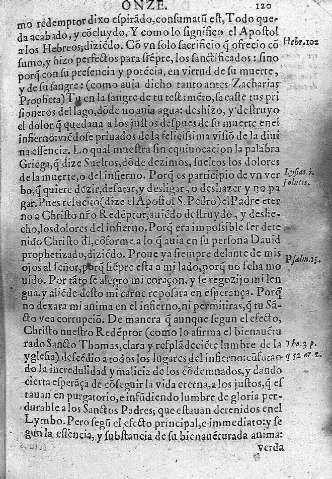 ONZE. 120
mo redemptor dixo espirādo, consumatū est, Todo que-
da acabado, y cōcluydo, Y como lo significo el Apostol
a los Hebreos, diziēdo. Cō vn solo sacrificio q̄ ofrecio cō
sumo, y hizo perfectos para siēpre, los sanctificados: sino
porq̄ con su presencia y potēcia, en virtud de su muerte,
y de su sangre: (como auia dicho tanto antes Zacharias
Propheta) Tu en la sangre de tu testamēto, sacaste tus pri
sioneros del lago, dōde no auia agua: deshizo, y destruyo
el dolor q̄ quedaua a los justos despues de su muerte en el
infierno: viēdose priuados de la felicissima visiō de la diui
na essencia. Lo qual muestra sin equiuocacion la palabra
Griega, q̄ dize Sueltos, dōde dezimos, sueltos los dolores
de la muerte, o del infierno. Porq̄ es participio de vn ver
bo, q̄ quiere dezir, desatar, y desligar, o deshazer y no pa
gar. Pues resucito (dize el Apostol S. Pedro) el Padre eter
no a Christo nr̄o Redēptor, auiēdo destruydo, y deshe-
cho, los dolores del infierno, Porq̄ era impossible ser dete
nido Christo allí, cōforme a lo q̄ auia en su persona Dauid
prophetizado, diziēdo. Proueya siempre delante de mis
ojos al señor, porq̄ siēpre esta a mi lado, porq̄ no sea mo
uido. Por tāto se alegro mi coraçon, y se regozijo mi len
gua, y aliēde desto mi carne reposara en esperança. Porq̄
no dexaras mi anima en el infierno, ni permitiras, q̄ tu Sā
cto vea corrupciō. De manera q̄ aunque segun el efecto,
Christo nuestro Redēptor (como lo afirma el bienauētu
rado Sancto Thomas, clara y resplādeciēte lumbre de la
yglesia) descēdio a todos los lugares del infierno: cōfutan-
do la incredulidad y malicia de los cōdemnados, y dando
cierta esperāça de cōseguir la vida eterna, a los justos, q̄ es
tauan en purgatorio, e infudiendo lumbre de gloria per-
durable a los Sanctos Padres, que estauan detenidos enel
Lymbo. Pero segū el efecto principal, e immediato: y se
gun la essencia, y substancia de su bienauenturada anima:
verda
Hebr. 10.
Psalm. 15.
Tho. 3. p.
q. 52. ar. 2.